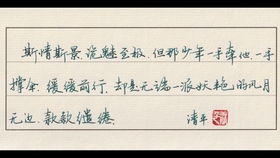 斯情斯景,诡魅至极,但那少年一手牵他,一手
撑伞,缓缓前行,却是无端一派妖艳的风月
无边,款款缱绻.
清平